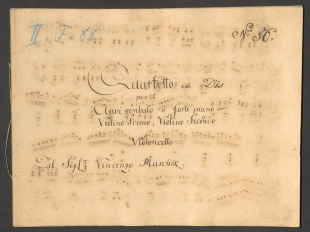 II. F. 88.
No 56.
Quartetto
per il
Clavi cembalo o forte piano
Violino Primo, Violino Secondo
Violoncello
Del Sigl: Vincenzo Maschek